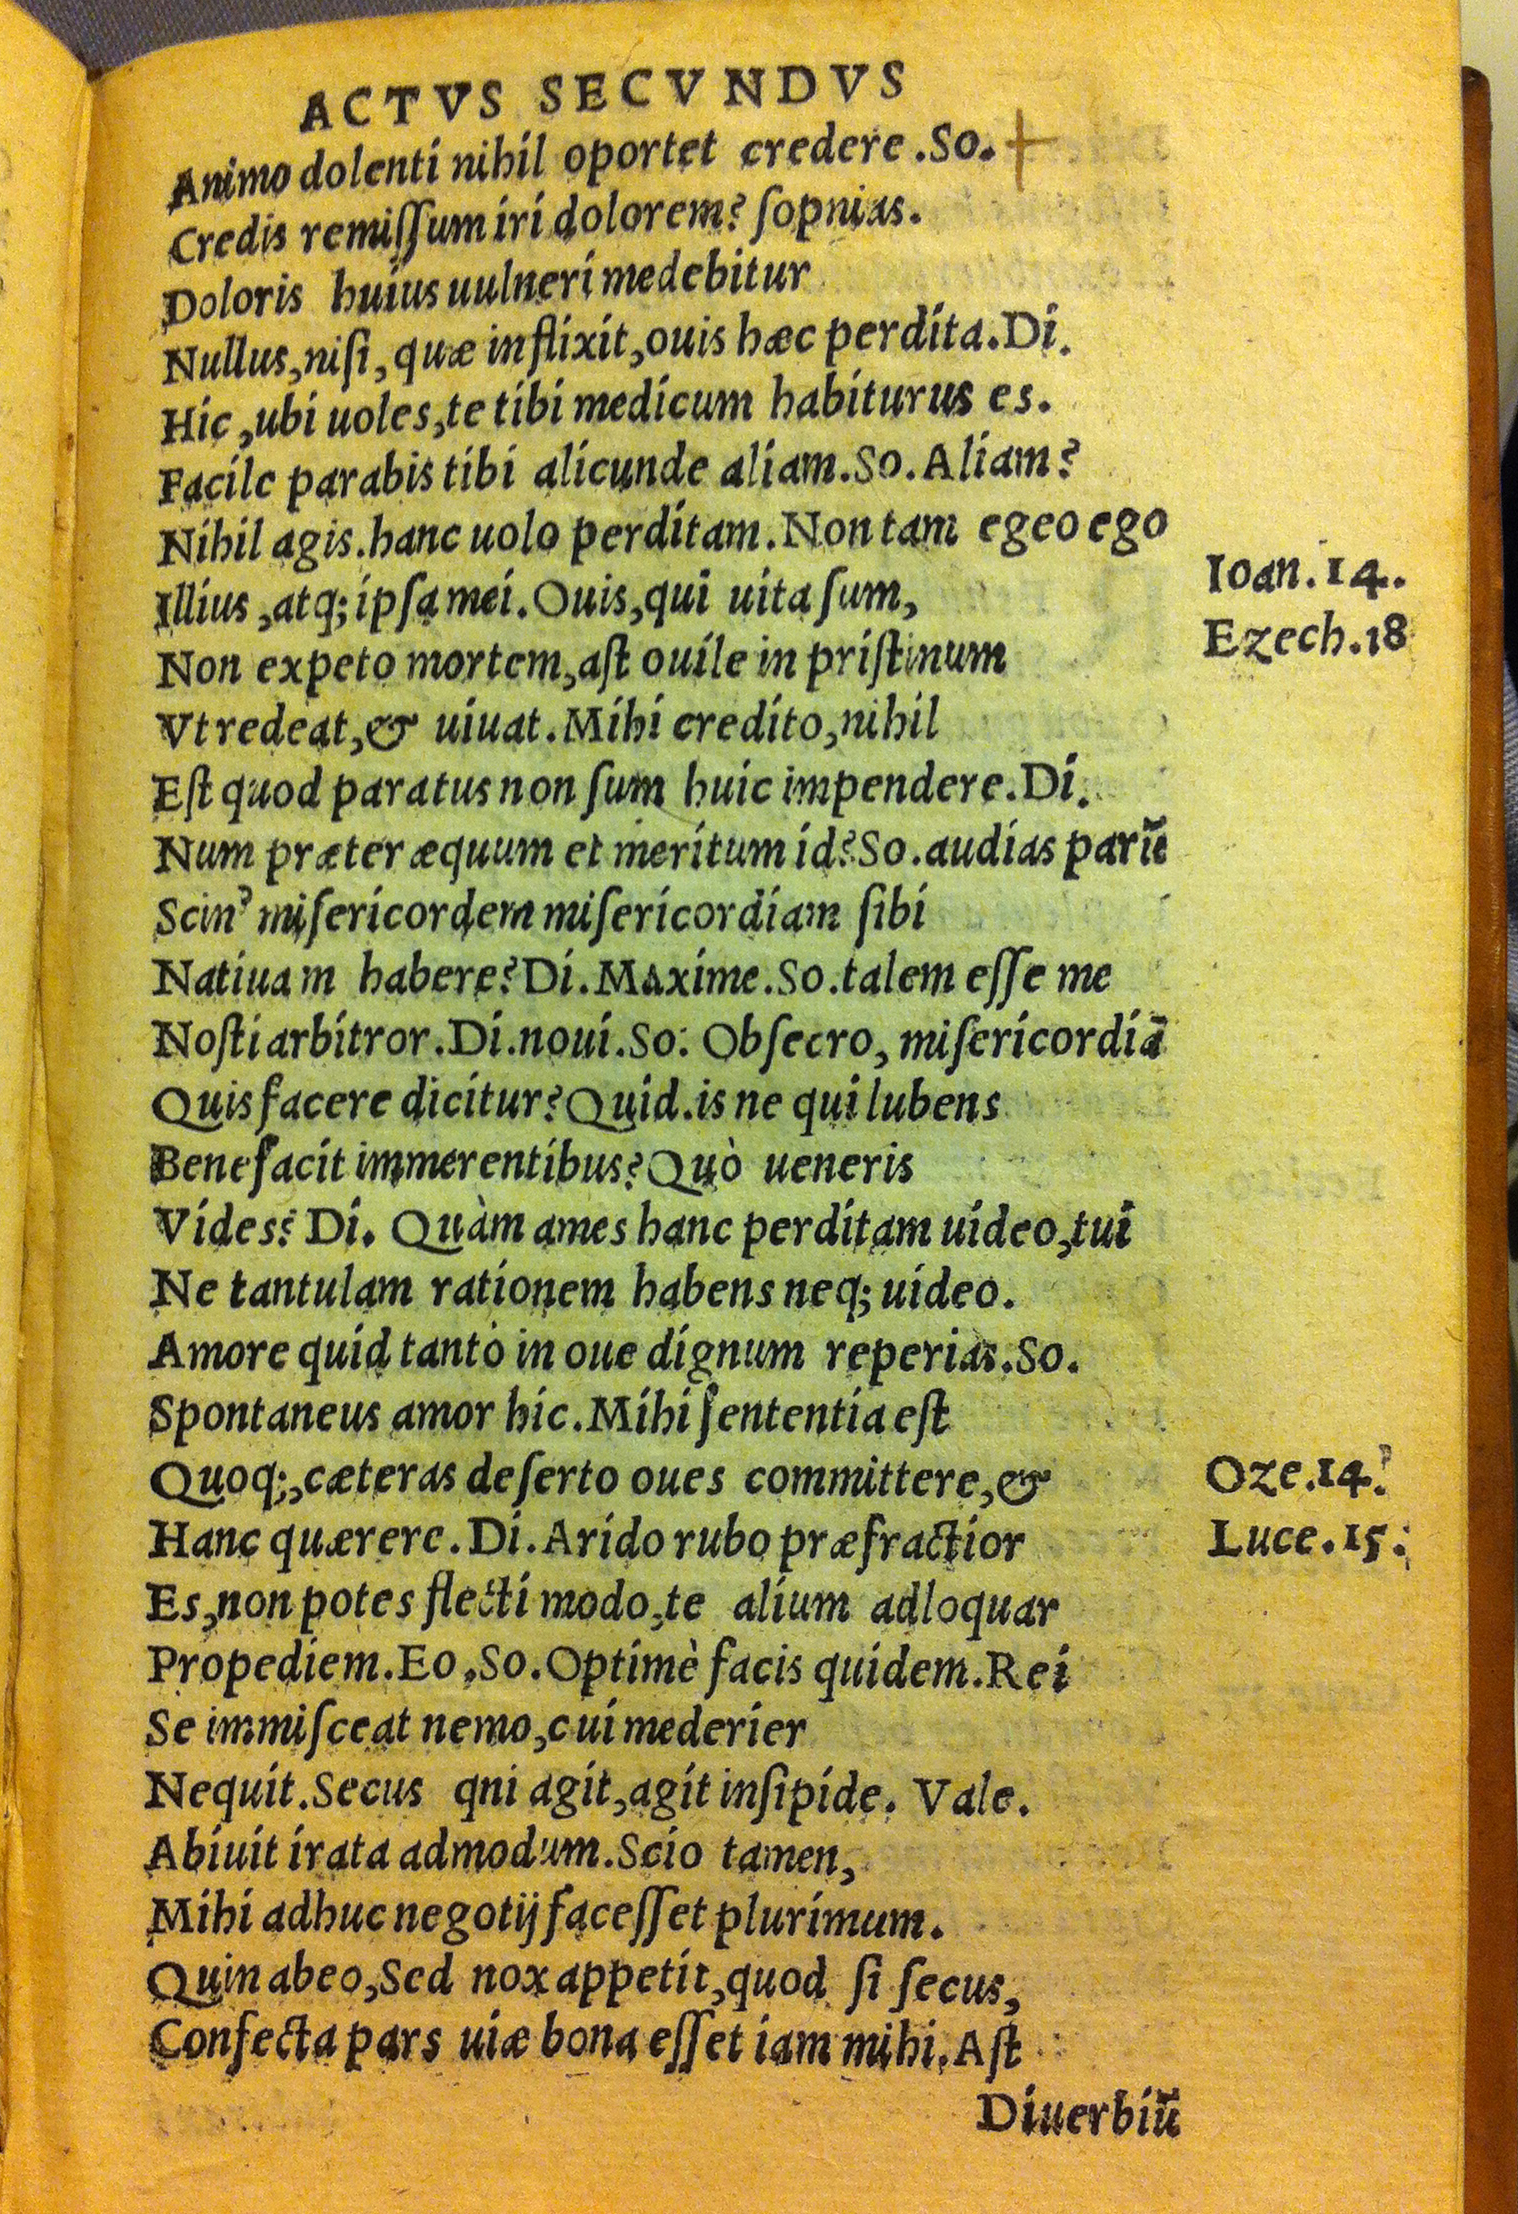 ACTVS SECVNDVS
Animo dolenti nihil oportet credere .So.
Credis remiſſum iri dolorem? ſopnias.
Doloris huius uulneri medebitur
Nullus, niſi, quæ inflixit, ouis hæc perdita. Di.
Hic, ubi uoles, te tibi medicum habiturus es.
Facile parabis tibi alicunde aliam. So. Aliam?
Nihil agis. hanc uolo perditam. Non tam egeo ego
Illius, atq; ipſa mei. Ouis, qui uita ſum,
Ioan. 14.
Non expeto mortem, aſt ouile in priſtinum
Ezech. 18
Vt redeat, & uiuat. Mihi credito, nihil
Eſt quod paratus non ſum huic impendere. Di.
Num præter æquum et meritum id? So. audias parū
Scin' miſericordem miſericordiam ſibi
Natiuam habere? Di. Maxime. So. talem eſſe me
Noſti arbitror. Di. noui. So. Obſecro, miſericordiā
Quis facere dicitur? Quid. is ne qui lubens
Benefacit immerentibus? Quò ueneris
Vides? Di. Quàm ames hanc perditam uideo, tui
Ne tantulam rationem habens neq; uideo.
Amore quid tanto in oue dignum reperias. So.
Spontaneus amor hic. Mihi ſententia eſt
Quoq;, cæteras deſerto oues committere, &
Oze. 14.
Hanc quærere. Di. Arido rubo præfractior
Luce. 15.
Es, non potes flecti modo, te alium adloquar
Propediem. Eo, So. Optimè facis quidem. Rei
Se immiſceat nemo, cui mederier
Nequit. Secus qni agit, agit inſipide. Vale.
Abiuit irata admodum. Scio tamen,
Mihi adhuc negotij faceſſet plurimum.
Quin abeo, Sed nox appetit, quod ſi ſecus,
Confecta pars uiæ bona eſſet iam mihi. Aſt
Diuerbiū